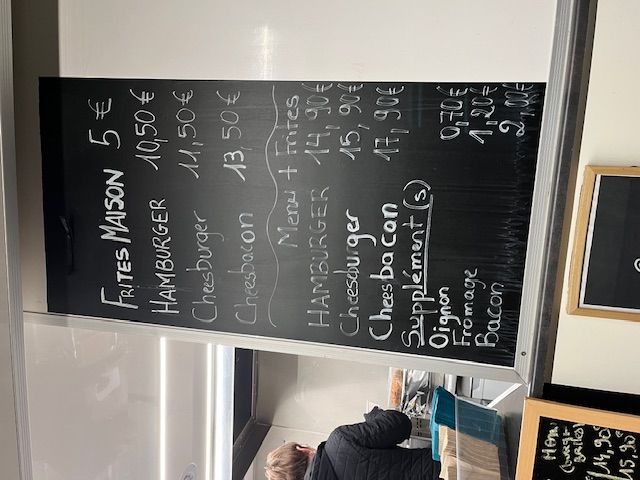 FRITES MAISON 5 €
HAMBURGER 10,50 €
Cheesburger 11,50 €
Cheesbacon 13,50 €
Menu + Frites
HAMBURGER 14,90 €
Cheesburger 15,90 €
Cheesbacon 17,90 €
Supplément(s)
Oignon 0,70 €
Fromage 1,20 €
Bacon 2,00 €
14,90
15,90